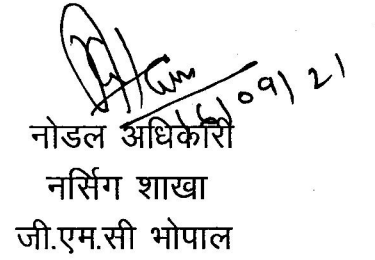 /09/21
नोडल अधिकारी
नर्सिग शाखा
जी.एम.सी भोपाल